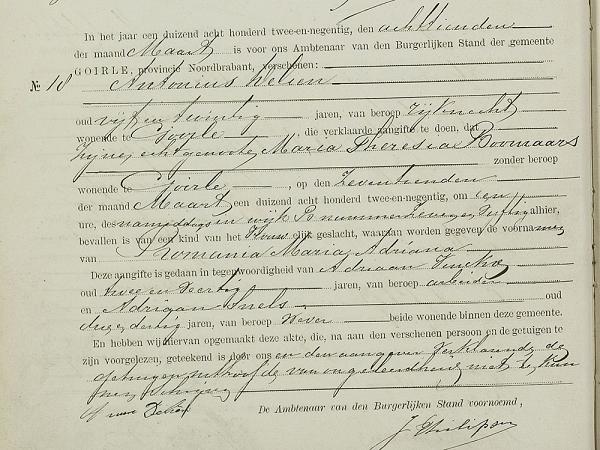 In het jaar een duizend acht honderd twee-en-negentig, den achttienden
der maand Maart is voor ons Ambtenaar van den Burgerlijken Stand der gemeente
GOIRLE, provincie Noordbrabant, verschenen:
No 18 Antonius
oud vijf en twintig jaren, van beroep
wonende te Goirle, die verklaarde aangifte te doen, dat
zijne echtgenoote Maria Theresia Boomaars
zonder beroep
wonende te Goirle, op den zeventienden
der maand Maart een duizend acht honderd twee-en-negentig, om een
ure, des namiddags in wijk B nummer zeven en vijftig alhier,
bevallen is van een kind van het vrouwelijk geslacht, waaraan worden gegeven de voornamen
van Romania Maria Adriana
Deze aangifte is gedaan in tegenwoordigheid van Adriaan
oud twee en veertig jaren, van beroep arbeider
en Adriaan Snels oud
drie en dertig jaren, van beroep Wever beide wonende binnen deze gemeente.
En hebben wij hiervan opgemaakt deze akte, die, na aan den verschenen persoon en de getuigen te
zijn voorgelezen, geteekend is door ons en den aangever verklaarende de
getuigen uit hoofde van ongeleerdheid niet te kun
nen schrijven
De Ambtenaar van den Burgerlijken Stand voornoemd,
J Philipsen